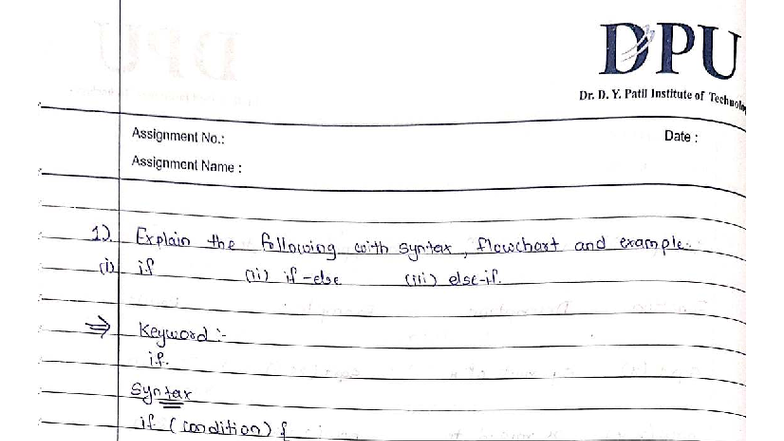 DPU
Dr. D. Y. Patil Institute of Technology
Assignment No.:
Date :
Assignment Name :
1). Explain the following with syntax, flowchart and example.
(i) if (ii) if-else (iii) else-if.
⇒ Keyword :-
if.
Syntax
if (condition) {